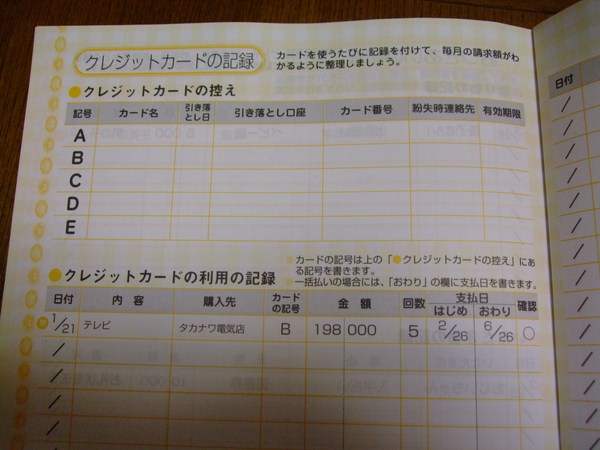 クレジットカードの記録
カードを使うたびに記録を付けて、毎月の請求額がわ
かるように整理しましょう。
●クレジットカードの控え
記号 カード名 引き落とし日 引き落とし口座 カード番号 紛失時連絡先 有効期限
A
B
C
D
E
●クレジットカードの利用の記録
カードの記号は上の「●クレジットカードの控え」にあ
る記号を書きます。
一括払いの場合には、「おわり」の欄に支払日を書きます。
日付 内容 購入先 カードの記号 金額 回数 支払日 はじめ おわり 確認
1/21 テレビ タカナワ電気店 B 198 000 5 2/26 6/26 ○
/
/
/
日付
/
/
/
/
/
/
/
/
/